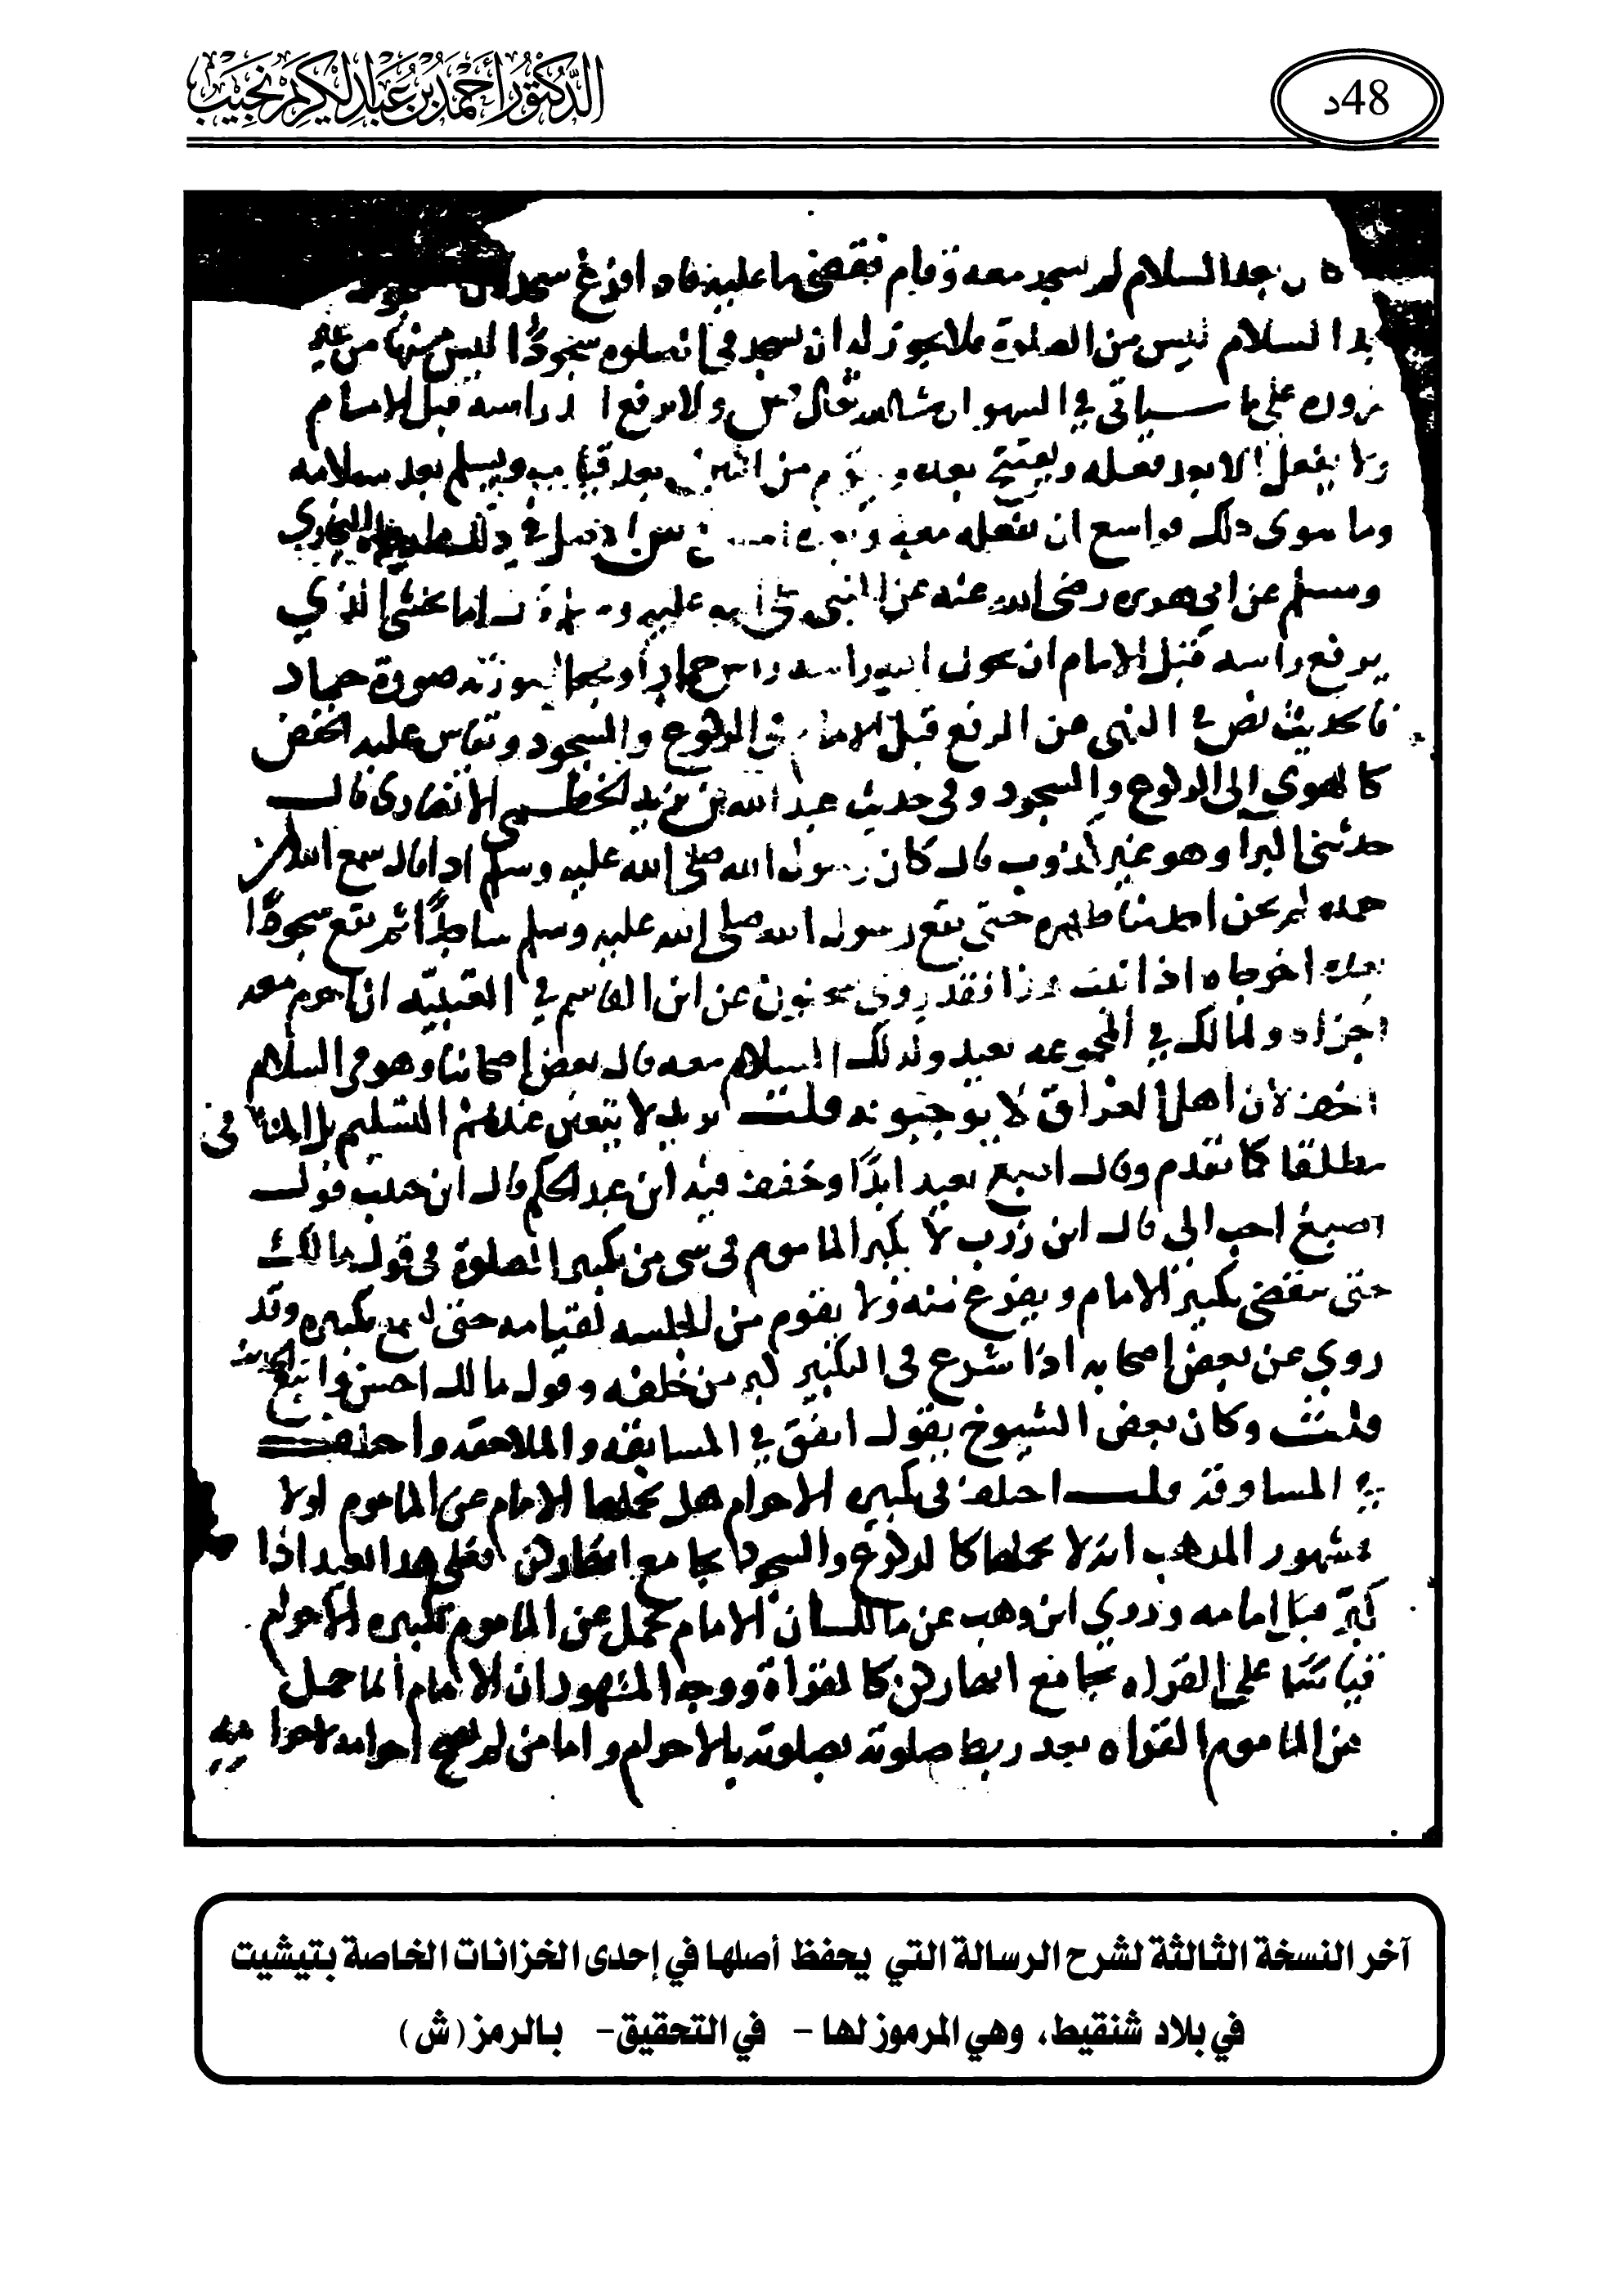 الدكتور أحمد بن عبد الكريم نجيب
48د
بعد السلام لم يسجد معه وقام فقضى ما عليه فاذا فرغ سجد
السلام ليس من الصلوة فلا يجوز له ان يسجد في صلوته سجودا ليس منها من غير
على ما سياتي في السهو ان شا الله تعالى ولا يرفع احد راسه قبل الامام
ولا يفعل الا بعد فعله ويفتتح بعده ويقوم من اثنتين بعد قيامه ويسلم بعد سلامه
وما سوى ذلك فواسع ان يفعله معه
ومسلم عن ابي هريره رضي الله عنه عن النبي صلى الله عليه وسلم اما يخشى الذي
يرفع راسه قبل الامام ان يحول الله راسه راس حمار او يجعل صورته صورة حمار
فالحديث نص في النهي عن الرفع قبل الامام في الركوع والسجود ويقاس عليه الخفض
كالهوي الى الركوع والسجود وفي حديث عبد الله بن يزيد الخطمي الانصاري قال
حدثني البرا وهو غير كذوب قال كان رسول الله صلى الله عليه وسلم اذا قال سمع الله لمن
حمده لم يحن احد منا ظهره حتى يقع رسول الله صلى الله عليه وسلم ساجدا ثم نقع سجودا
بعده اخرجاه اذا ثبت هذا فقد روى سحنون عن ابن القاسم في العتبية ان احرم معه
اجزاه ولمالك في المجموعه يعيد وكذلك السلام معه قال بعض اصحابنا وهو في السلام
اخف لان اهل العراق لا يوجبونه قلت يريد لا يتعين عندهم التسليم بل المنافي
مطلقا كما تقدم وقال اصبغ يعيد ابدا وخفف فيه ابن عبد الحكم قال ابن حبيب قول
اصبغ احب الي قال ابن زرب لا يكبر الماموم في شي من تكبير الصلوة في قول مالك
حتى ينقضي تكبير الامام ويفرغ منه ولا يقوم من الجلسه لقيامه حتى تكبيره وقد
روي عن بعض اصحابه اذا شرع في التكبير كبر من خلفه وقول مالك احسن واتبع للحديث
قلت وكان بعض الشيوخ يقول اتفق في المسابقه والملاحقه واختلف
في المساوقة قلت اختلف في تكبيره الاحرام هل يحملها الامام عن الماموم اولا
مشهور المذهب انه لا يحملها كالركوع والسجود بجامع انها ركن فعلى هذا يعيد اذا
كبر قبل امامه وروي ابن وهب عن مالك ان الامام يحمل عن الماموم تكبيره الاحرام
قياسا على القراه بجامع انها ركن كالقراة ووجه المشهور ان الامام انما حمل
عن الماموم القراه بعد ربط صلوته بصلوته بالاحرام واما من لم يصح احرامه
آخر النسخة الثالثة لشرح الرسالة التي يحفظ أصلها في إحدى الخزانات الخاصة بتيشيت
في بلاد شنقيط، وهي المرموز لها - في التحقيق - بالرمز (ش)